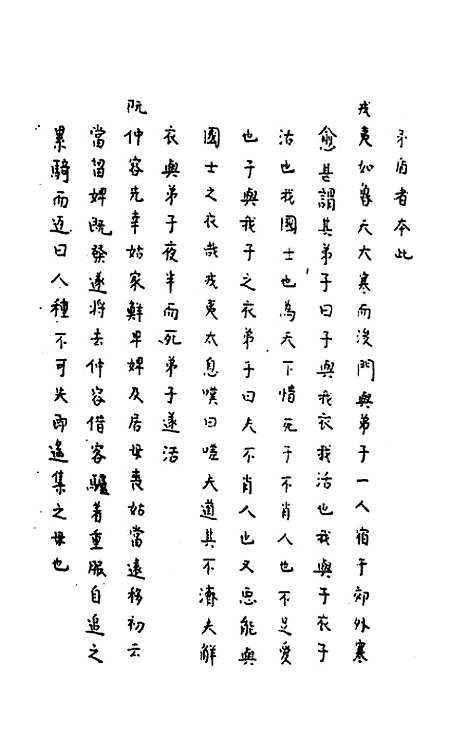 矛盾者本此
戎夷如魯天大寒而後門與弟子一人宿于郊外寒
愈甚謂其弟子曰子與我衣我活也我與子衣子
活也我國士也為天下惜死子不肖人也不足愛
也子與我子之衣弟子曰夫不肖人也又惡能與
國士之衣哉戎夷太息嘆曰嗟夫道其不濟夫解
衣與弟子夜半而死弟子遂活
阮仲容先幸姑家鮮卑婢及居母喪姑當遠移初云
當留婢既發遂將去仲容借客驢著重服自追之
累騎而返曰人種不可失即遙集之母也